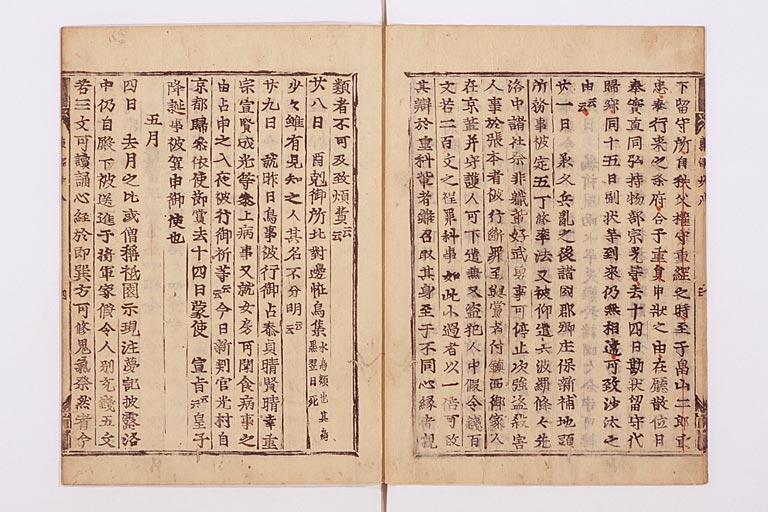 下留守所自秩父權守重經之時至于畠山二郎重
忠奉行來之条府合于重員申狀之由在廳散位日
奉實直同弘持物部宗光等去十四日勘狀留守代
歸寂同十五日副狀等到來仍無相違可致沙汰之
由云云
廿一日 承久兵亂之後諸國郡鄉庄保新補地頭
所務事被定五丁條率法又被仰遣六波羅條々先
洛中諸社祭非職輩好武勇事可停止次強盜殺害
人事於張本者被行断罪至與黨者付鎮西御家人
在京並守護人可下遣焉又盜犯人中假令錢百
文若二百文之程罪科事如此小過者以一倍可改
其辨於重科輩者雖召取其身至于不同心緣者親
類者不可及致煩費云云
廿八日 酉剋御所北對邊恠鳥集水鳥類也其為黒翌日死
少々雖有見知之人其名不分明云云
廿九日 就昨日鳥事被行御占泰貞晴賢晴幸重
宗宣賢或光等參上病事又就女房可聞食病事之
由占申之入夜被行御祈等云云今日新判官光村自
京都歸參依使御賞去十四日蒙使 宣旨云云皇子
降誕事被賀申御使也
五月
四日 去月之比或僧稱祇園示現注夢記披露洛
中仍自殿下被送進于將軍家假令人別充錢五文
若三文可讀誦心經於即巽方可修鬼氣祭然者今